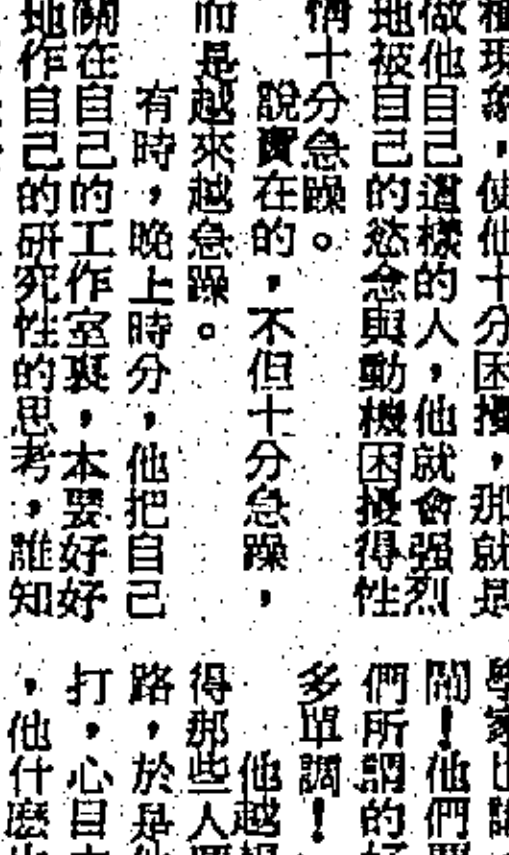 種現象，使他十分困擾，那就是
做他自己這樣的人，他就會强烈
地被自己的慾念與動機困擾得性
情十分急躁。
說實在的，不但十分急躁，
而是越來越急躁。
有時，晚上時分，他把自己
關在自己的工作室裏，本要好好
地作自己的研究性的思考，誰知
學家
闆！他們
們所謂的好
多單調！
他越
得那些人
路，於是他
打，心目
，他什麼